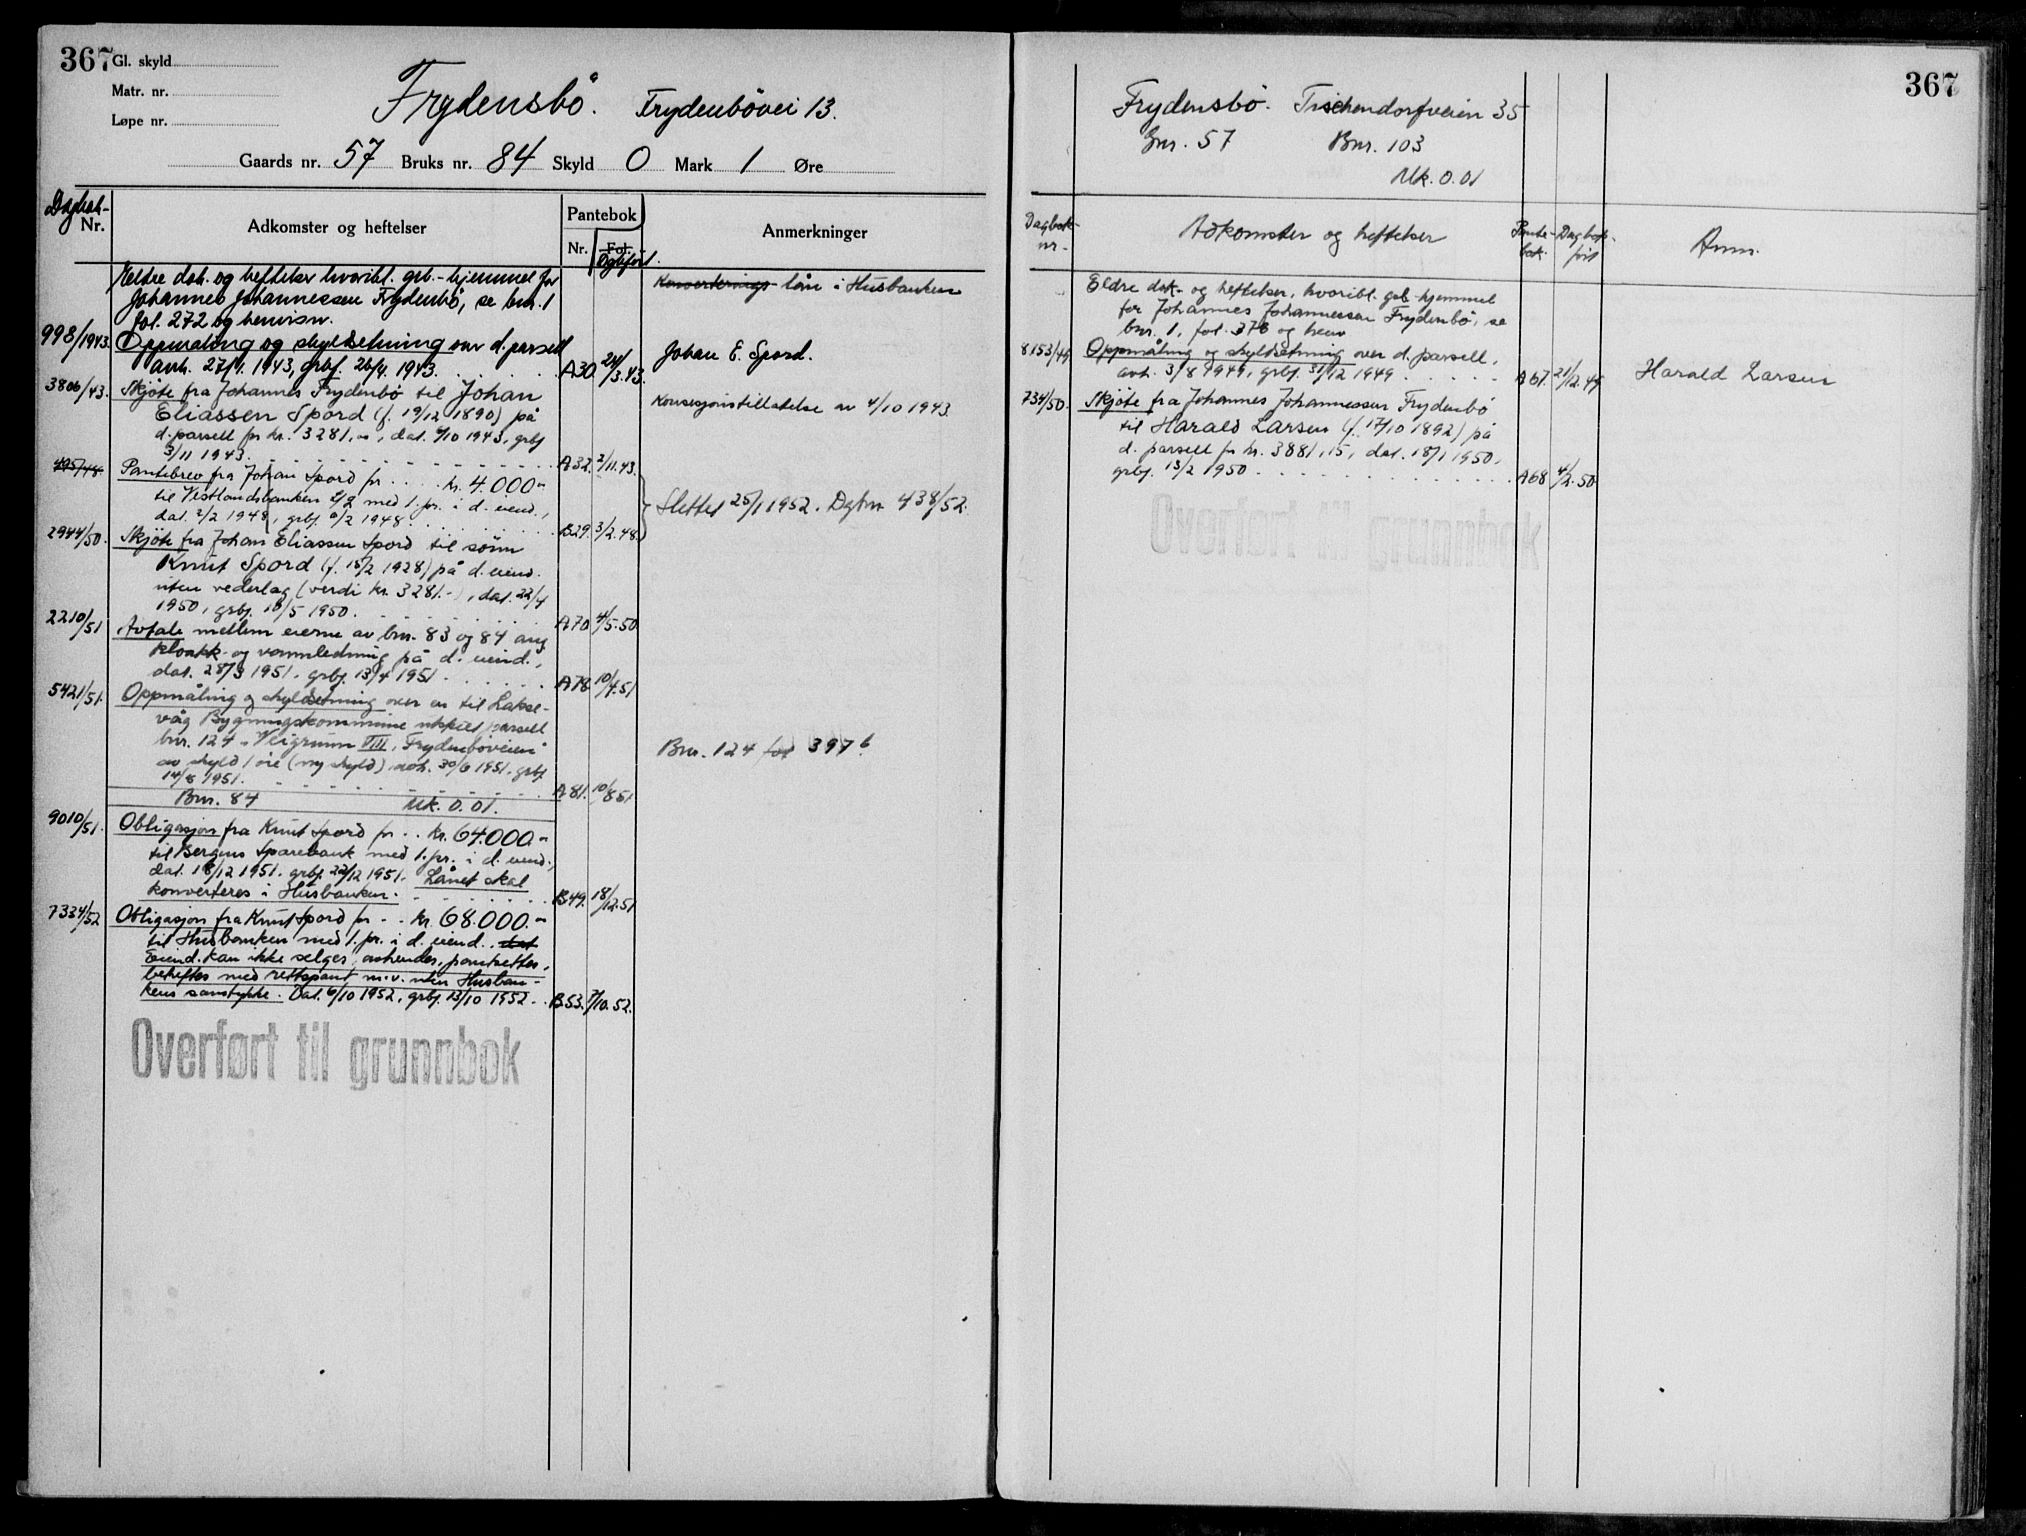 367
Gl. skyld
Matr. nr.
Løpe nr.
Frydensbö. Frydenbövei 13.
Gaards nr. 57 Bruks nr. 84 Skyld 0 Mark 1 Øre
Dagbok-
Nr.
Adkomster og heftelser
Pantebok
Nr. Fol.
Dgbført.
Anmerkninger
Eldre dok. og heftelser hvoribl. grb.-hjemmel for
Johannes Johannessen Frydenbö, se bnr. 1
fol. 272 og henvisn.
Konverterings lån i Husbanken
998/1943. Oppmåling og skyldsetning over d. parsell
avh. 27/1. 1943, grbf. 26/4. 1943. A30 24/3.43.
Johan E. Spord.
3806/43. Skjöte fra Johannes Frydenbö til Johan
Eliassen Spord (f. 19/12 1890) på
d. parsell for kr. 3281,-, dat. 4/10 1943, grbf
3/11 1943. A32. 2/11.43.
Konsesjonstillatelse av 4/10 1943
495/48. Pantebrev fra Johan Spord for kr. 4.000,-
til Vestlandsbanken L/L med 1. pr. i d. eiend.,
dat. 2/2 1948, grbf. 6/2 1948. B29. 3/2.48.
Slettet 25/1 1952. Dgbnr 438/52.
2944/50. Skjöte fra Johan Eliassen Spord til sönn
Knut Spord (f. 18/2 1928) på d. eiend.
uten vederlag (verdi kr. 3281.-), dat. 22/4
1950, grbf. 16/5 1950. A70 4/5.50.
2210/51 Avtale mellem eierne av bnr. 83 og 84 ang
kloakk- og vannledning på d. eiend.,
dat. 28/3 1951. grbf. 13/4 1951. A78 10/4.51
5421/51. Oppmåling og skyldsetning over en til Lakse-
våg Bygningskommune utskilt parsell
bnr. 124 „Veigrunn VIII, Frydenböveien"
av skyld 1 öre (ny skyld) avh. 30/6 1951. grbf.
14/8 1951. A81. 10/8 51
Bnr. 124 fol 397 b.
Bnr. 84 Mk. 0.01.
9010/51. Obligasjon fra Knut Spord for kr. 64.000,-
til Bergens Sparebank med 1. pr. i d. eiend.,
dat. 18/12 1951. grbf. 22/12 1951. Lånet skal
konverteres i Husbanken. B49. 18/12.51
7334/52 Obligasjon fra Knut Spord for kr. 68.000.-
til Husbanken med 1. pr. i d. eiend. dat
Eiend. kan ikke selges, avhendes, pantsettes,
beheftes med rettspant m.v. uten Husban-
kens samtykke. Dat. 6/10 1952, grbf. 13/10 1952. B53. 7/10.52.
Overført til grunnbok
367
Frydensbö. Tischendorfveien 35
Gnr. 57 Bnr. 103
Mk. 0.01
Dagbok-
nr.
Adkomster og heftelser
Pante-
bok.
Dagbok-
ført
Anm.
Eldre dok. og heftelser, hvoribl. grb-hjemmel
for Johannes Johannessen Frydenbö, se
bnr. 1, fol. 378 og henv
8153/49 Oppmåling og skyldsetning over d. parsell,
avh. 3/8 1949, grbf. 31/12 1949. A67. 21/12.49
Harald Larsen
734/50. Skjöte fra Johannes Johannessen Frydenbö
til Harald Larsen (f. 17/10 1892) på
d. parsell for kr. 3881,15, dat. 18/1 1950,
grbf. 13/2 1950. A68 4/2.50
Overført til grunnbok